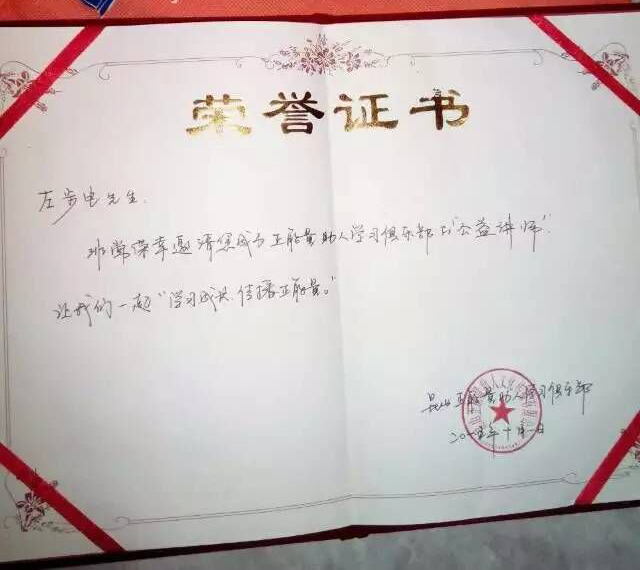 荣誉证书
左步电先生.
非常荣幸邀请您成为正能量助人学习俱乐部的"公益讲师".
让我们一起"学习成长.传播正能量。"
昆山正能量助人学习俱乐部
二〇一五年十月一日